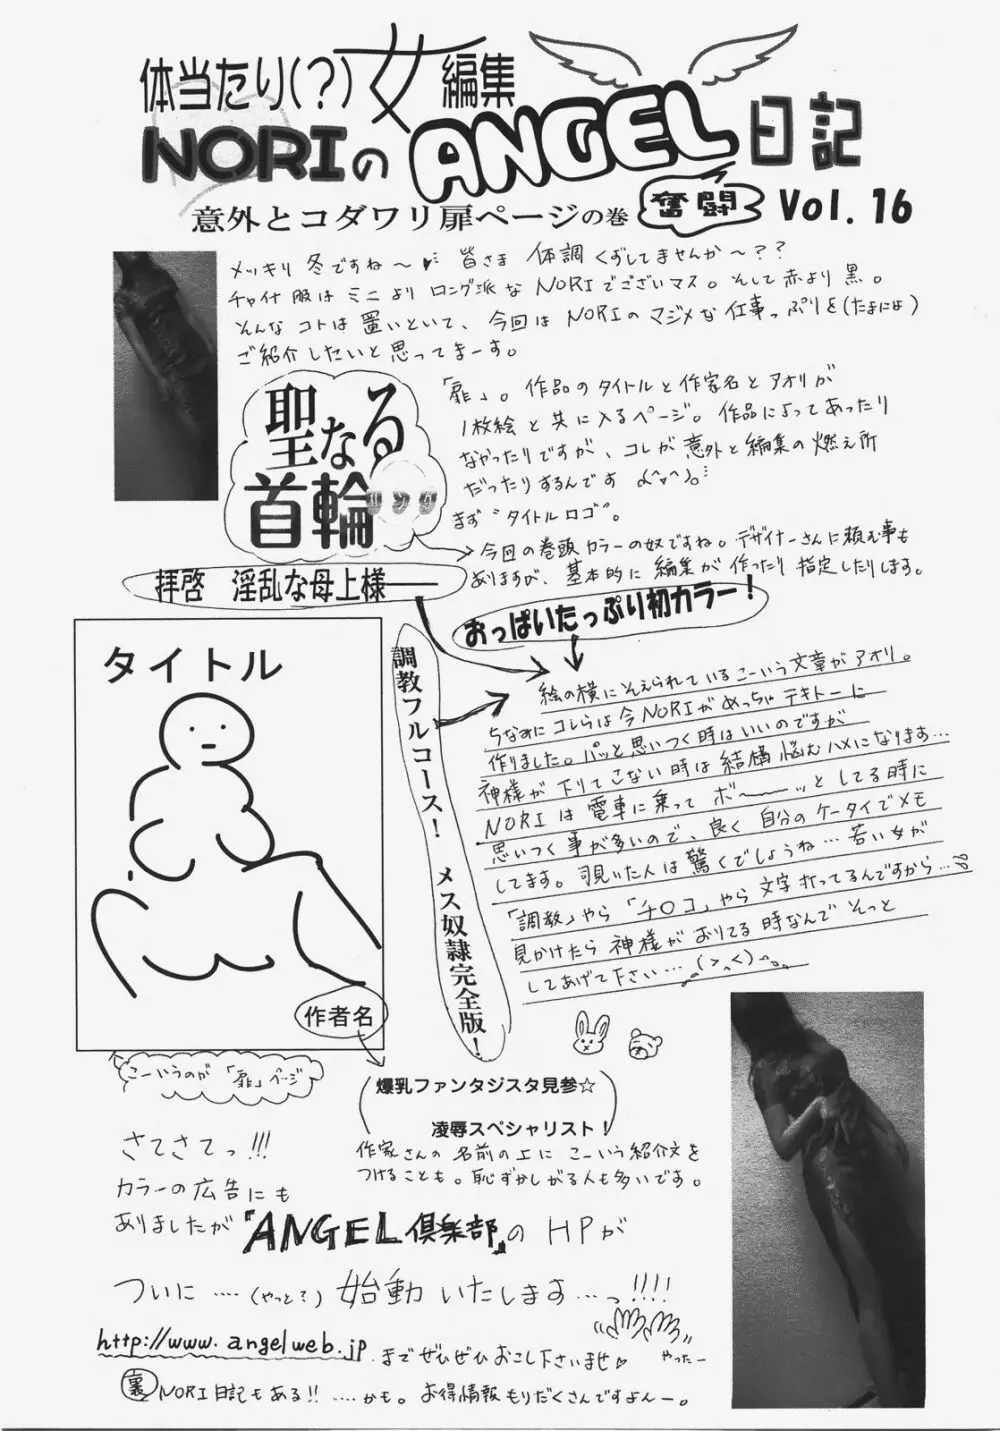 体当たり(?)女編集
NORIのANGEL日記
意外とコダワリ扉ページの巻 奮闘 Vol.16
メッキリ冬ですね〜 皆さま 体調くずしてませんか〜??
チャイナ服はミニよりロング派なNORIでございマス。そして赤より黒。
そんなコトは置いといて、今回はNORIのマジメな仕事っぷりを(たまには)
ご紹介したいと思ってまーす。
聖なる
首輪
「扉」。作品のタイトルと作家名とアオリが
1枚絵と共に入るページ。作品によってあったり
なかったりですが、コレが意外と編集の燃え所
だったりするんです
まず"タイトルロゴ"。
今回の巻頭カラーの奴ですね。デザイナーさんに頼む事も
ありますが、基本的に編集が作ったり指定したりします。
拝啓 淫乱な母上様――
おっぱいたっぷり初カラー!
調教フルコース! メス奴隷完全版!
絵の横にそえられているこーいう文章がアオリ。
ちなみにコレらは今NORIがめっちゃテキトーに
作りました。パッと思いつく時はいいのですが
神様が下りてこない時は結構悩むハメになります…
NORIは電車に乗ってボ〜〜ッとしてる時に
思いつく事が多いので、良く自分のケータイでメモ
してます。覗いた人は驚くでしょうね…若い女が
「調教」やら「チ○コ」やら文字打ってるんですから…
見かけたら神様がおりてる時なんでそっと
してあげて下さい…(>_<)
タイトル
作者名
こーいうのが「扉」ページ
爆乳ファンタジスタ見参☆
凌辱スペシャリスト!
作家さんの名前の上にこーいう紹介文を
つけることも。恥ずかしがる人も多いです。
さてさてっ!!!
カラーの広告にも
ありましたが『ANGEL倶楽部』のHPが
ついに……(やっと?)始動いたします…っ!!!!
やったー
http://www.angelweb.jp までぜひぜひおこし下さいませ
裏NORI日記もある!!……かも。お得情報もりだくさんですよんー。